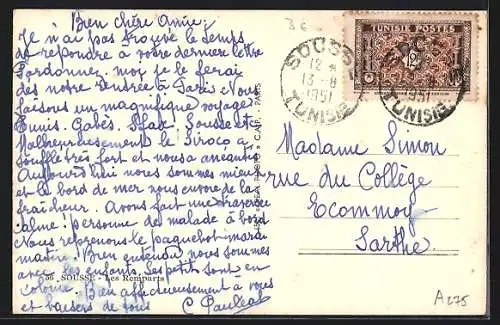 Bien chère Amie,
Je n'ai pas trouvé le temps
de répondre à votre dernière lettre
Pardonnez moi je le ferai
dès notre rentrée à Paris et nous
faisons un magnifique voyage
Tunis. Gabès. Sfax. Sousse et
Malheureusement le Siroco a
soufflé très fort et nous a anéantis
Aujourd'hui nous sommes mieux
et le bord de mer nous envoie de la
fraîcheur. Avons fait une traversée
calme! personne de malade à bord
Nous reprenons le paquebot mardi
matin! Bien entendu nous sommes
avec les enfants. Les petits sont en
colonie. Bien affectueusement à vous
et baisers de tous
C Pauleat
SOUSSE - Les Remparts
36
SOUSSE
12 *
13 - 8
1951
TUNISIE
TUNISIE POSTES
12
1951
TUNISIE
Madame Simon
rue du Collège
Ecommoy
Sarthe
A275